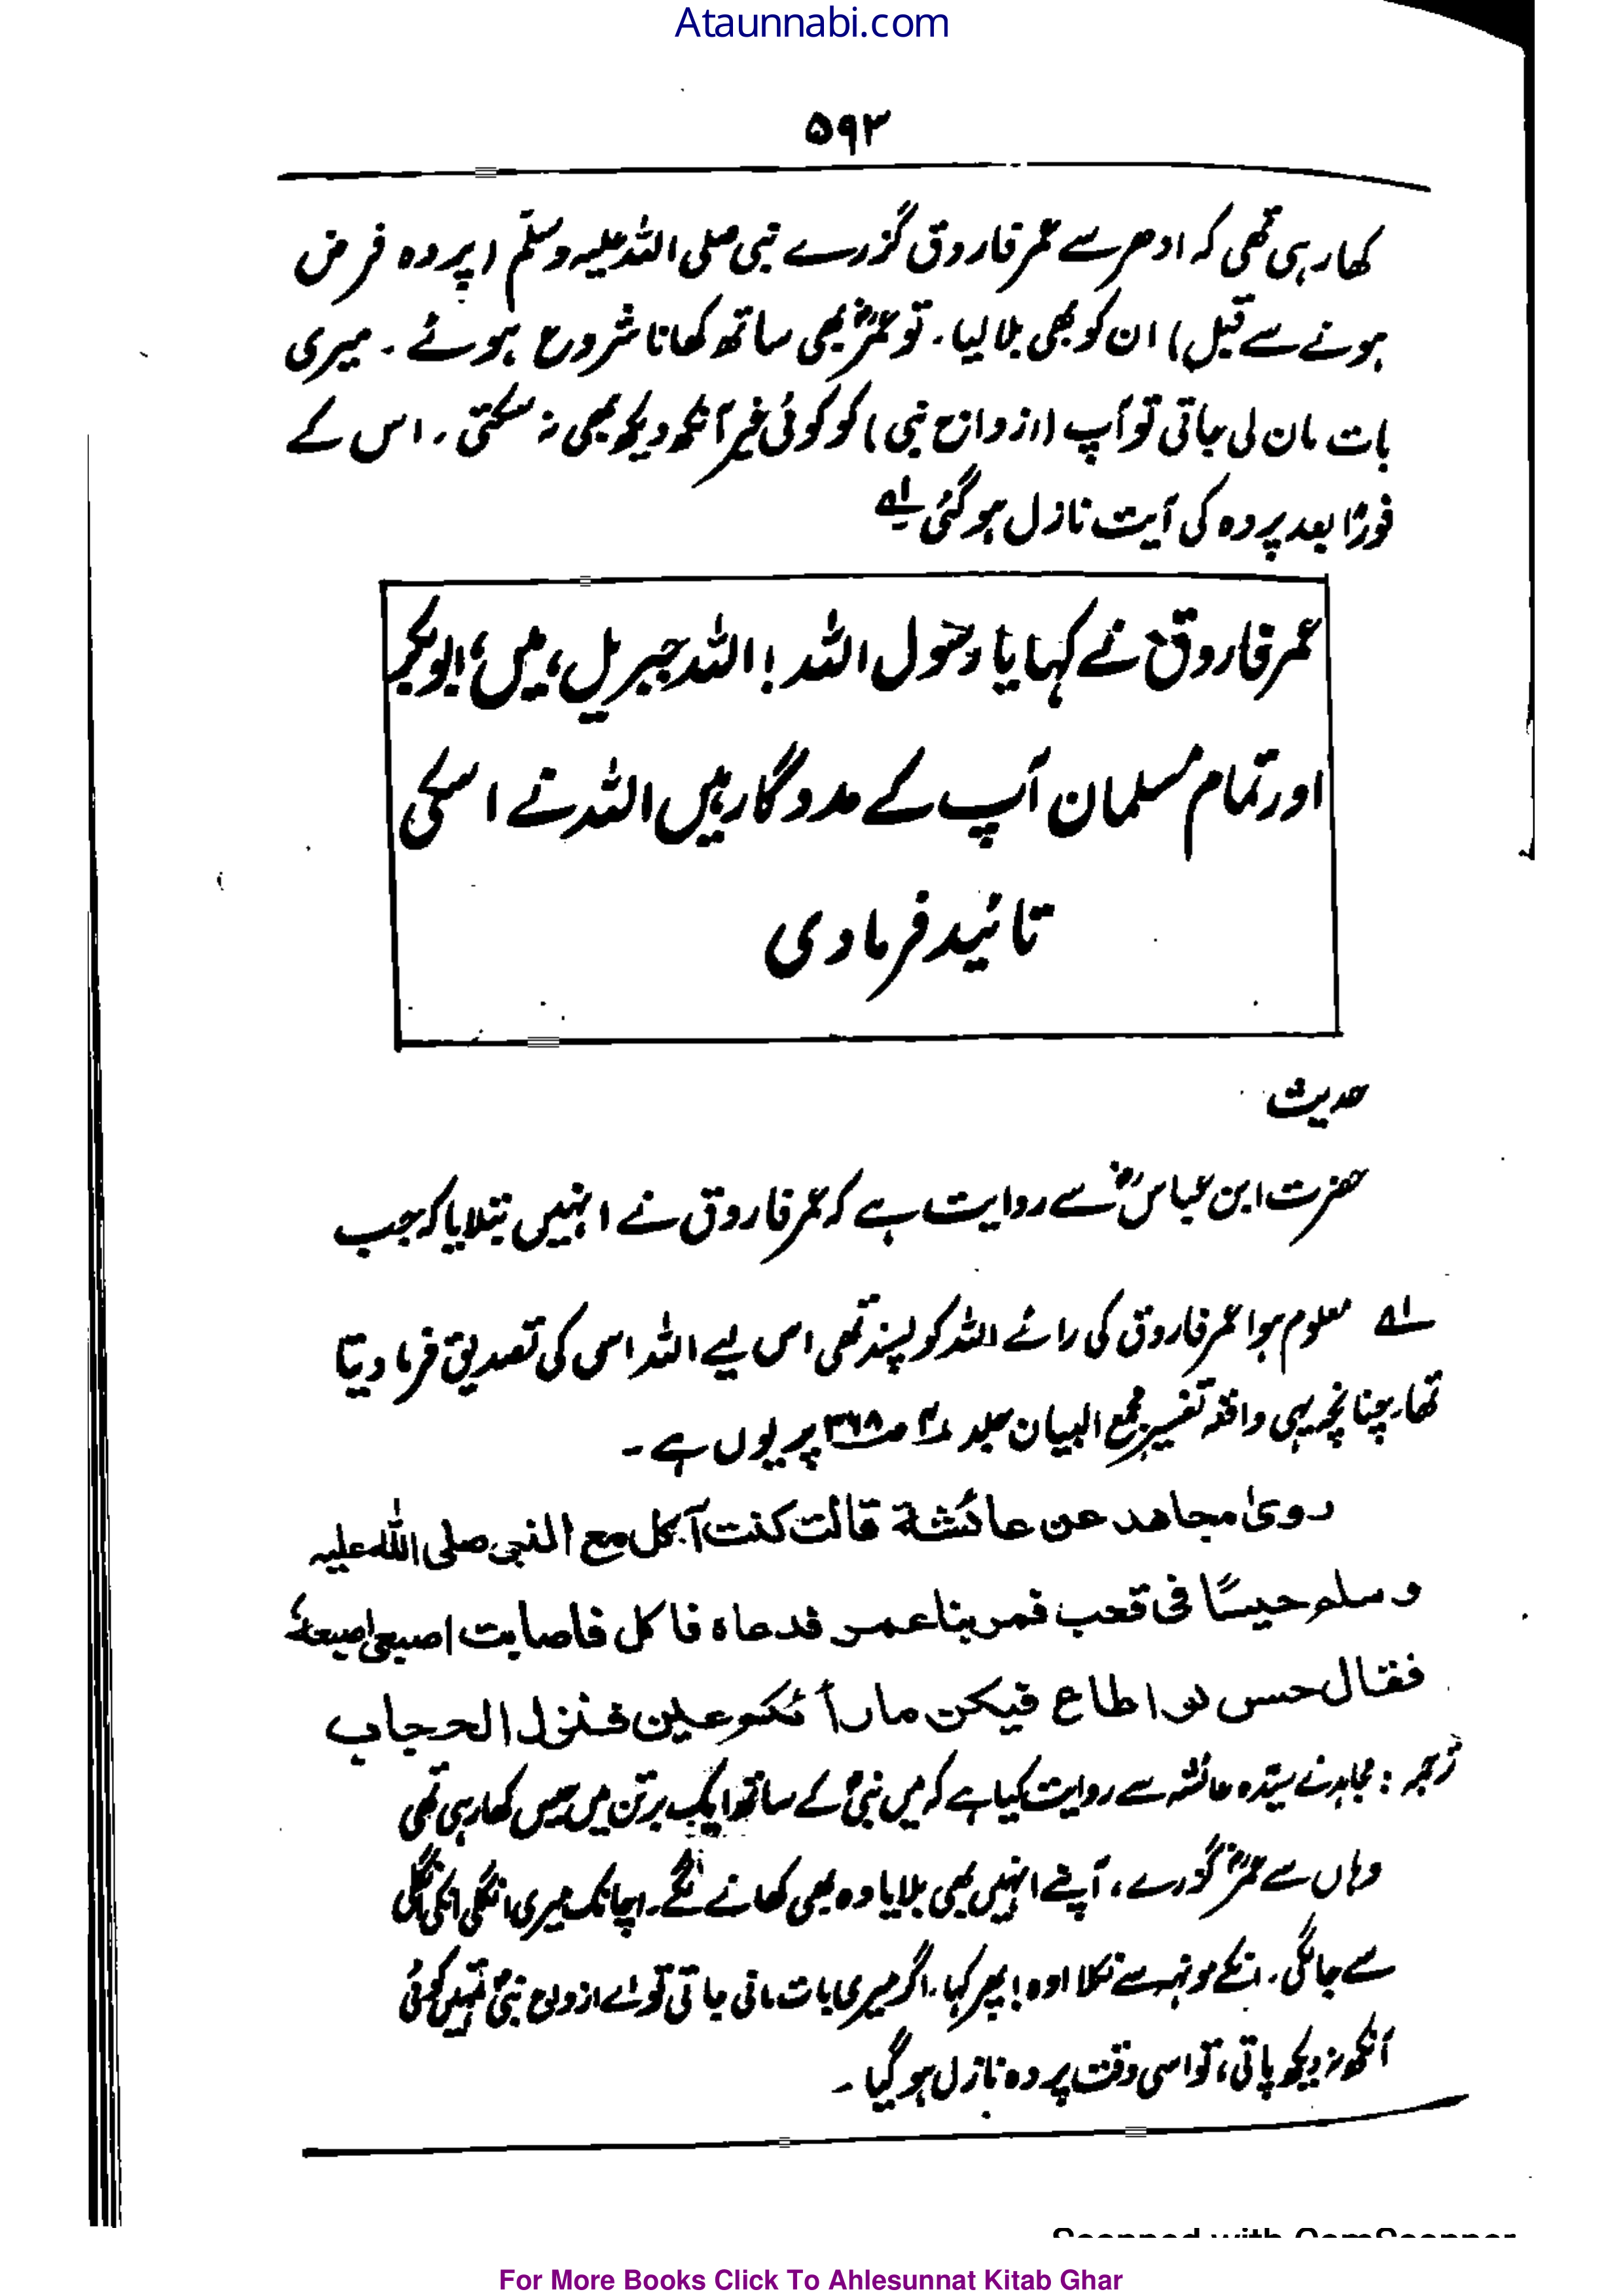 Ataunnabi.com
۵۹۲
کھا رہی تھی کہ ادھر سے عمر فاروق گزرے نبی صلی اللہ علیہ وسلم (پردہ فرض
ہونے سے قبل) ان کو بھی بلا لیا۔ تو عمرؓ بھی ساتھ کھانا شروع ہوئے۔ میری
بات مان لی جاتی تو آپ (ازواج نبی) کو کوئی غیر آنکھ دیکھ بھی نہ سکتی۔ اس کے
فورًا بعد پردہ کی آیت نازل ہو گئی لے
عمر فاروق نے کہا یا رسول اللہ! اللہ جبریل، میں، ابوبکر
اور تمام مسلمان آپ کے مددگار ہیں اللہ نے اسکی
تائید فرما دی
حدیث
حضرت ابن عباسؓ سے روایت ہے کہ عمر فاروق نے انہیں بتلایا کہ جب
لے معلوم ہوا عمر فاروق کی رائے اللہ کو پسند تھی اس لیے اللہ اس کی تصدیق فرما دیتا
تھا۔ چنانچہ یہی واقعہ تفسیر مجمع البیان جلد ۴ ص ۳۶۸ پر یوں ہے۔
روی مجاهد عن عائشة قالت کنت آکل مع النبی صلی اللہ علیہ
وسلم حیسًا فی قعب فمر بنا عمر فدعاه فاکل فاصابت اصبعی اصبعهٗ
فقال حس لو اطاع فیکن ما رأتکم عین فنزل الحجاب
ترجمہ: مجاہد نے سیّدہ عائشہ سے روایت کیا ہے کہ میں نبیؐ کے ساتھ ایک برتن میں حیس کھا رہی تھی
وہاں سے عمرؓ گزرے، آپنے انہیں بھی بلایا وہ بھی کھانے لگے۔ اچانک میری انگلی انکی انگلی
سے جا لگی۔ انکے مونہہ سے نکلا اوہ! پھر کہا۔ اگر میری بات مانی جاتی تو اے ازواج نبیؐ تمہیں کوئی
آنکھ نہ دیکھ پاتی، تو اسی وقت پردہ نازل ہو گیا۔
Scanned with CamScanner
For More Books Click To Ahlesunnat Kitab Ghar